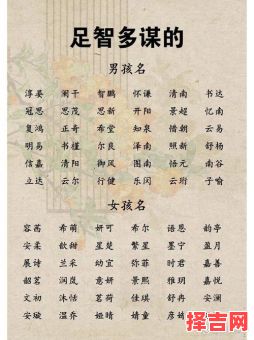 足智多谋的
男孩名
淳晏 澜干 智鹏 怀谦 清南 书达
冠思 思茂 思新 开阳 景超 忆南
复鸿 正奇 希堂 知泉 惜朝 云易
明易 书槿 尔良 泽南 照新 舒杨
信嘉 清阳 御风 图南 悟元 南谷
立达 云尔 行健 乐闲 云珩 子喻
女孩名
容茜 希萌 妍可 希尔 语恩 韵亭
安柔 歆甜 星楚 繁星 墨宁 盈月
展诗 兰采 幼宜 弥菲 时君 嘉善
韶茗 润岚 意妍 景熙 雅玥 嘉悦
文初 沐恬 茗荷 佳琪 舒冉 安澜
安璇 温乔 娅晴 婧童 彦婧
择吉网